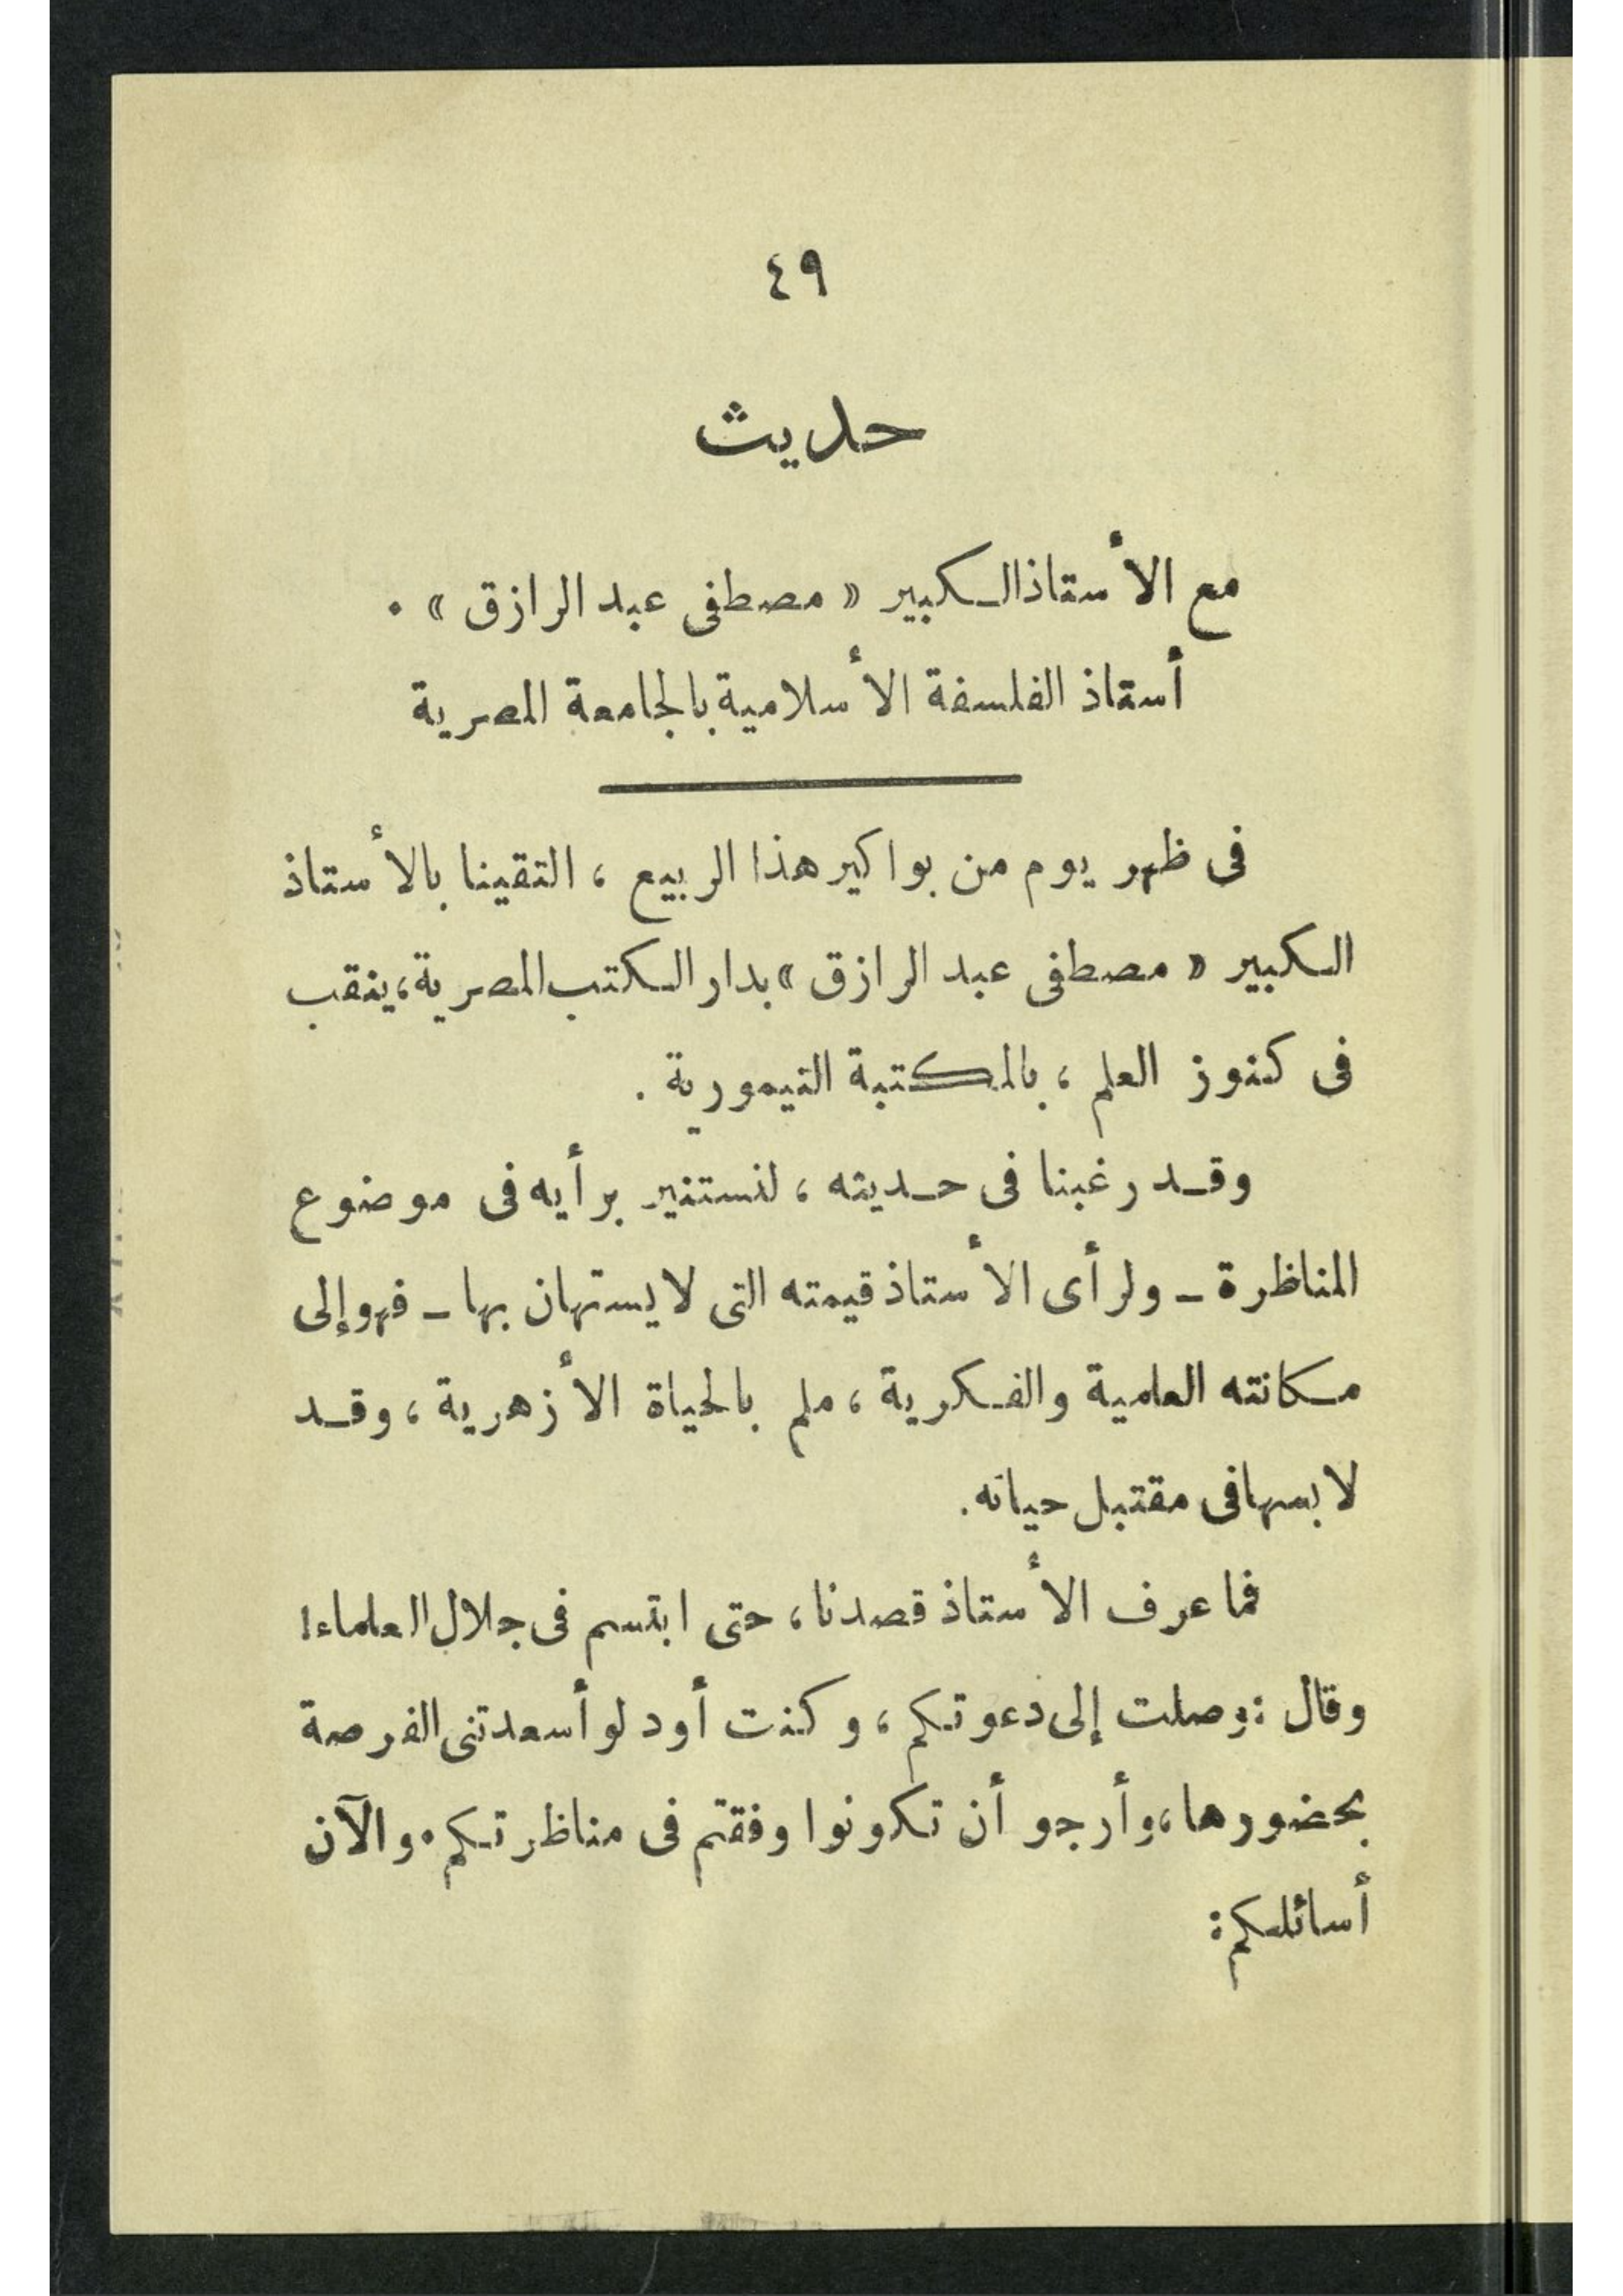 ٤٩
حديث
مع الأستاذ الكبير « مصطفى عبد الرازق » .
أستاذ الفلسفة الأسلامية بالجامعة المصرية
فى ظهر يوم من بواكير هذا الربيع ، التقينا بالأستاذ
الكبير « مصطفى عبد الرازق » بدار الكتب المصرية ، ينقب
فى كنوز العلم ، بالمكتبة التيمورية .
وقد رغبنا فى حديثه ، لنستنير برأيه فى موضوع
المناظرة ــ ولرأى الأستاذ قيمته التى لا يستهان بها ــ فهو إلى
مكانته العلمية والفكرية ، ملم بالحياة الأزهرية ، وقد
لابسها فى مقتبل حياته .
فما عرف الأستاذ قصدنا ، حتى ابتسم فى جلال العلماء !
وقال : وصلت إلى دعوتكم ، وكنت أود لو أسعدتنى الفرصة
بحضورها ، وأرجو أن تكونوا وفقتم فى مناظرتكم . والآن
أسائلكم :